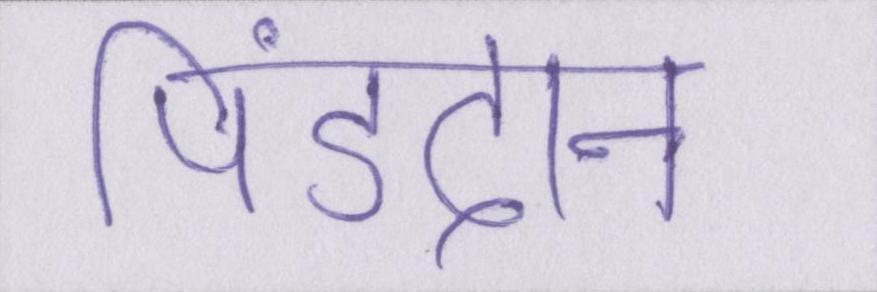 पिंडदान